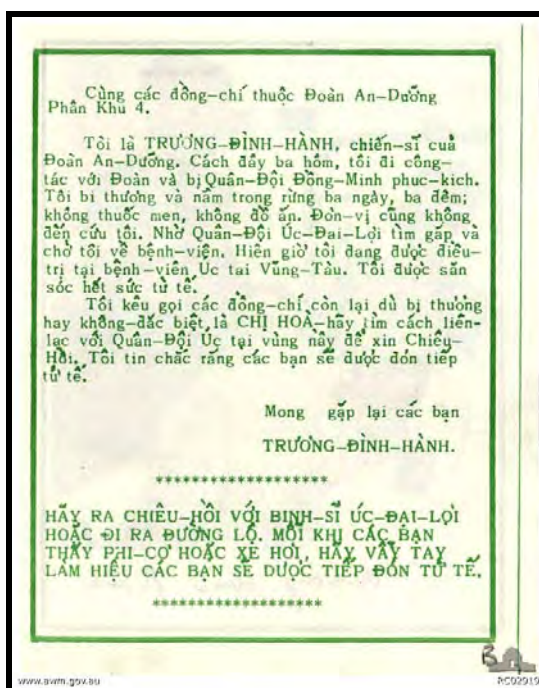 Cùng các đồng-chí thuộc Đoàn An-Dưỡng
Phân Khu 4.
Tôi là TRƯƠNG-ĐÌNH-HÀNH, chiến-sĩ cuả
Đoàn An-Dưỡng. Cách đây ba hôm, tôi đi công-
tác với Đoàn và bị Quân-Đội Đồng-Minh phuc-kich.
Tôi bi thương và nằm trong rừng ba ngày, ba đêm;
không thuốc men, không đồ ăn. Đơn-vị cũng không
đến cứu tôi. Nhờ Quân-Đội Úc-Đai-Lợi tìm gặp và
chở tôi về bệnh-viện. Hiên giờ tôi đang được điều-
trị tại bệnh-viên Uc tai Vũng-Tàu. Tôi được săn
sóc hết sức tử tế.
Tôi kêu gọi các đồng-chí còn lại dù bị thương
hay không-đặc biệt là CHỊ HOÀ-hãy tìm cách liên-
lạc với Quân-Đội Úc tại vùng này để xin Chiêu-
Hồi. Tôi tin chắc rằng các bạn sẽ được đón tiếp
tử tế.
Mong gặp lại các bạn
TRƯƠNG-ĐÌNH-HÀNH.
*******************
HÃY RA CHIÊU-HỒI VỚI BINH-SĨ ÚC-ĐẠI-LỢI
HOẶC ĐI RA ĐƯỜNG LỘ. MỖI KHI CÁC BẠN
THẤY PHI-CƠ HOẶC XE HƠI, HÃY VẪY TAY
LÀM HIỆU CÁC BẠN SẼ ĐƯỢC TIẾP ĐÓN TỬ TẾ.
*******************
www.awm.gov.au
RC02919